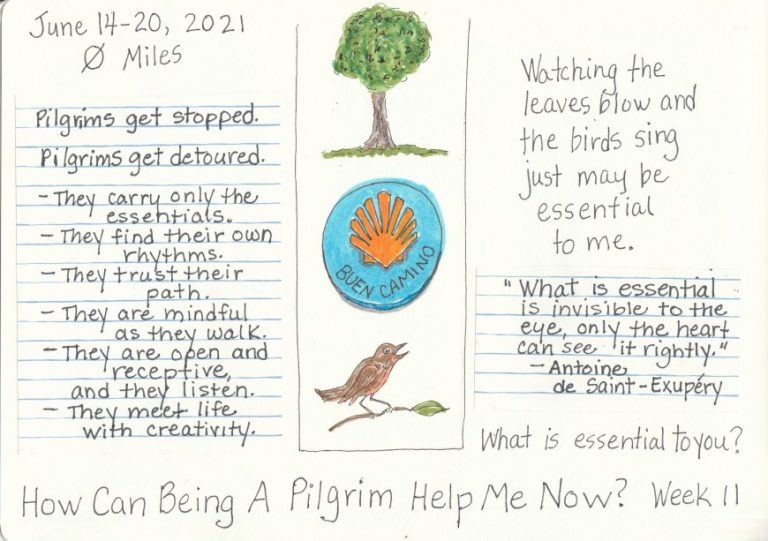 June 14-20, 2021
Ø Miles
Pilgrims get stopped.
Pilgrims get detoured.
- They carry only the
essentials.
- They find their own
rhythms.
- They trust their
path.
- They are mindful
as they walk.
- They are open and
receptive,
and they listen.
- They meet life
with creativity.
BUEN CAMINO
Watching the
leaves blow and
the birds sing
just may be
essential
to me.
"What is essential
is invisible to the
eye, only the heart
can see it rightly."
- Antoine
de Saint-Exupéry
What is essential to you?
How Can Being A Pilgrim Help Me Now? Week 11